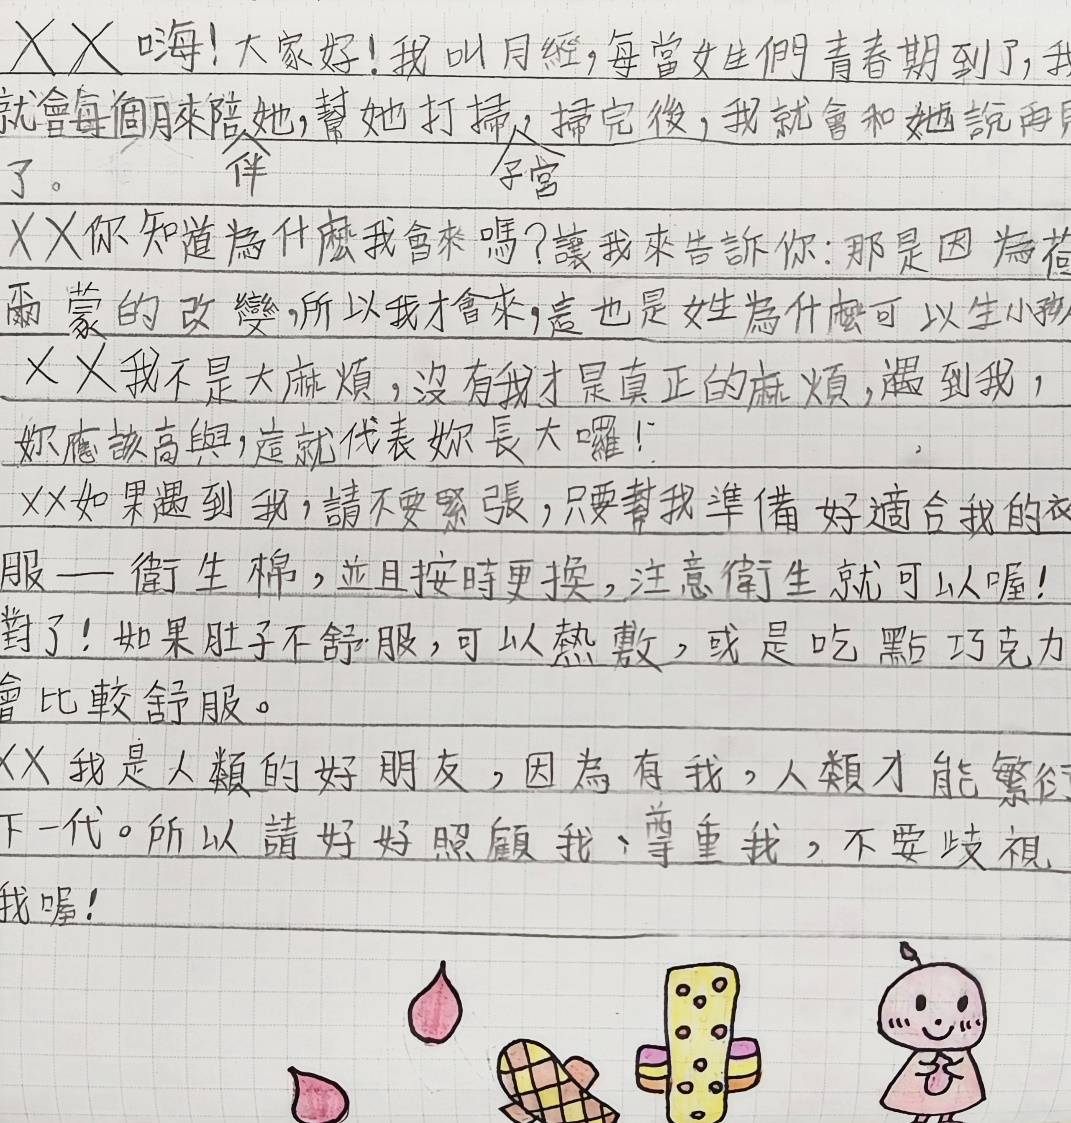 XX嗨!大家好!我叫月經,每當女生們青春期到了,我
就會每個月來陪伴她,幫她打掃子宮,掃完後,我就會和她說再見
了。
XX你知道為什麼我會來嗎?讓我來告訴你:那是因為荷
爾蒙的改變,所以我才會來,這也是女生為什麼可以生小孩
XX我不是大麻煩,沒有我才是真正的麻煩,遇到我,
妳應該高興,這就代表妳長大囉!
XX如果遇到我,請不要緊張,只要幫我準備好適合我的衣
服——衛生棉,並且按時更換,注意衛生就可以喔!
對了!如果肚子不舒服,可以熱敷,或是吃點巧克力
會比較舒服。
XX我是人類的好朋友,因為有我,人類才能繁衍
下一代。所以請好好照顧我、尊重我,不要歧視
我喔!